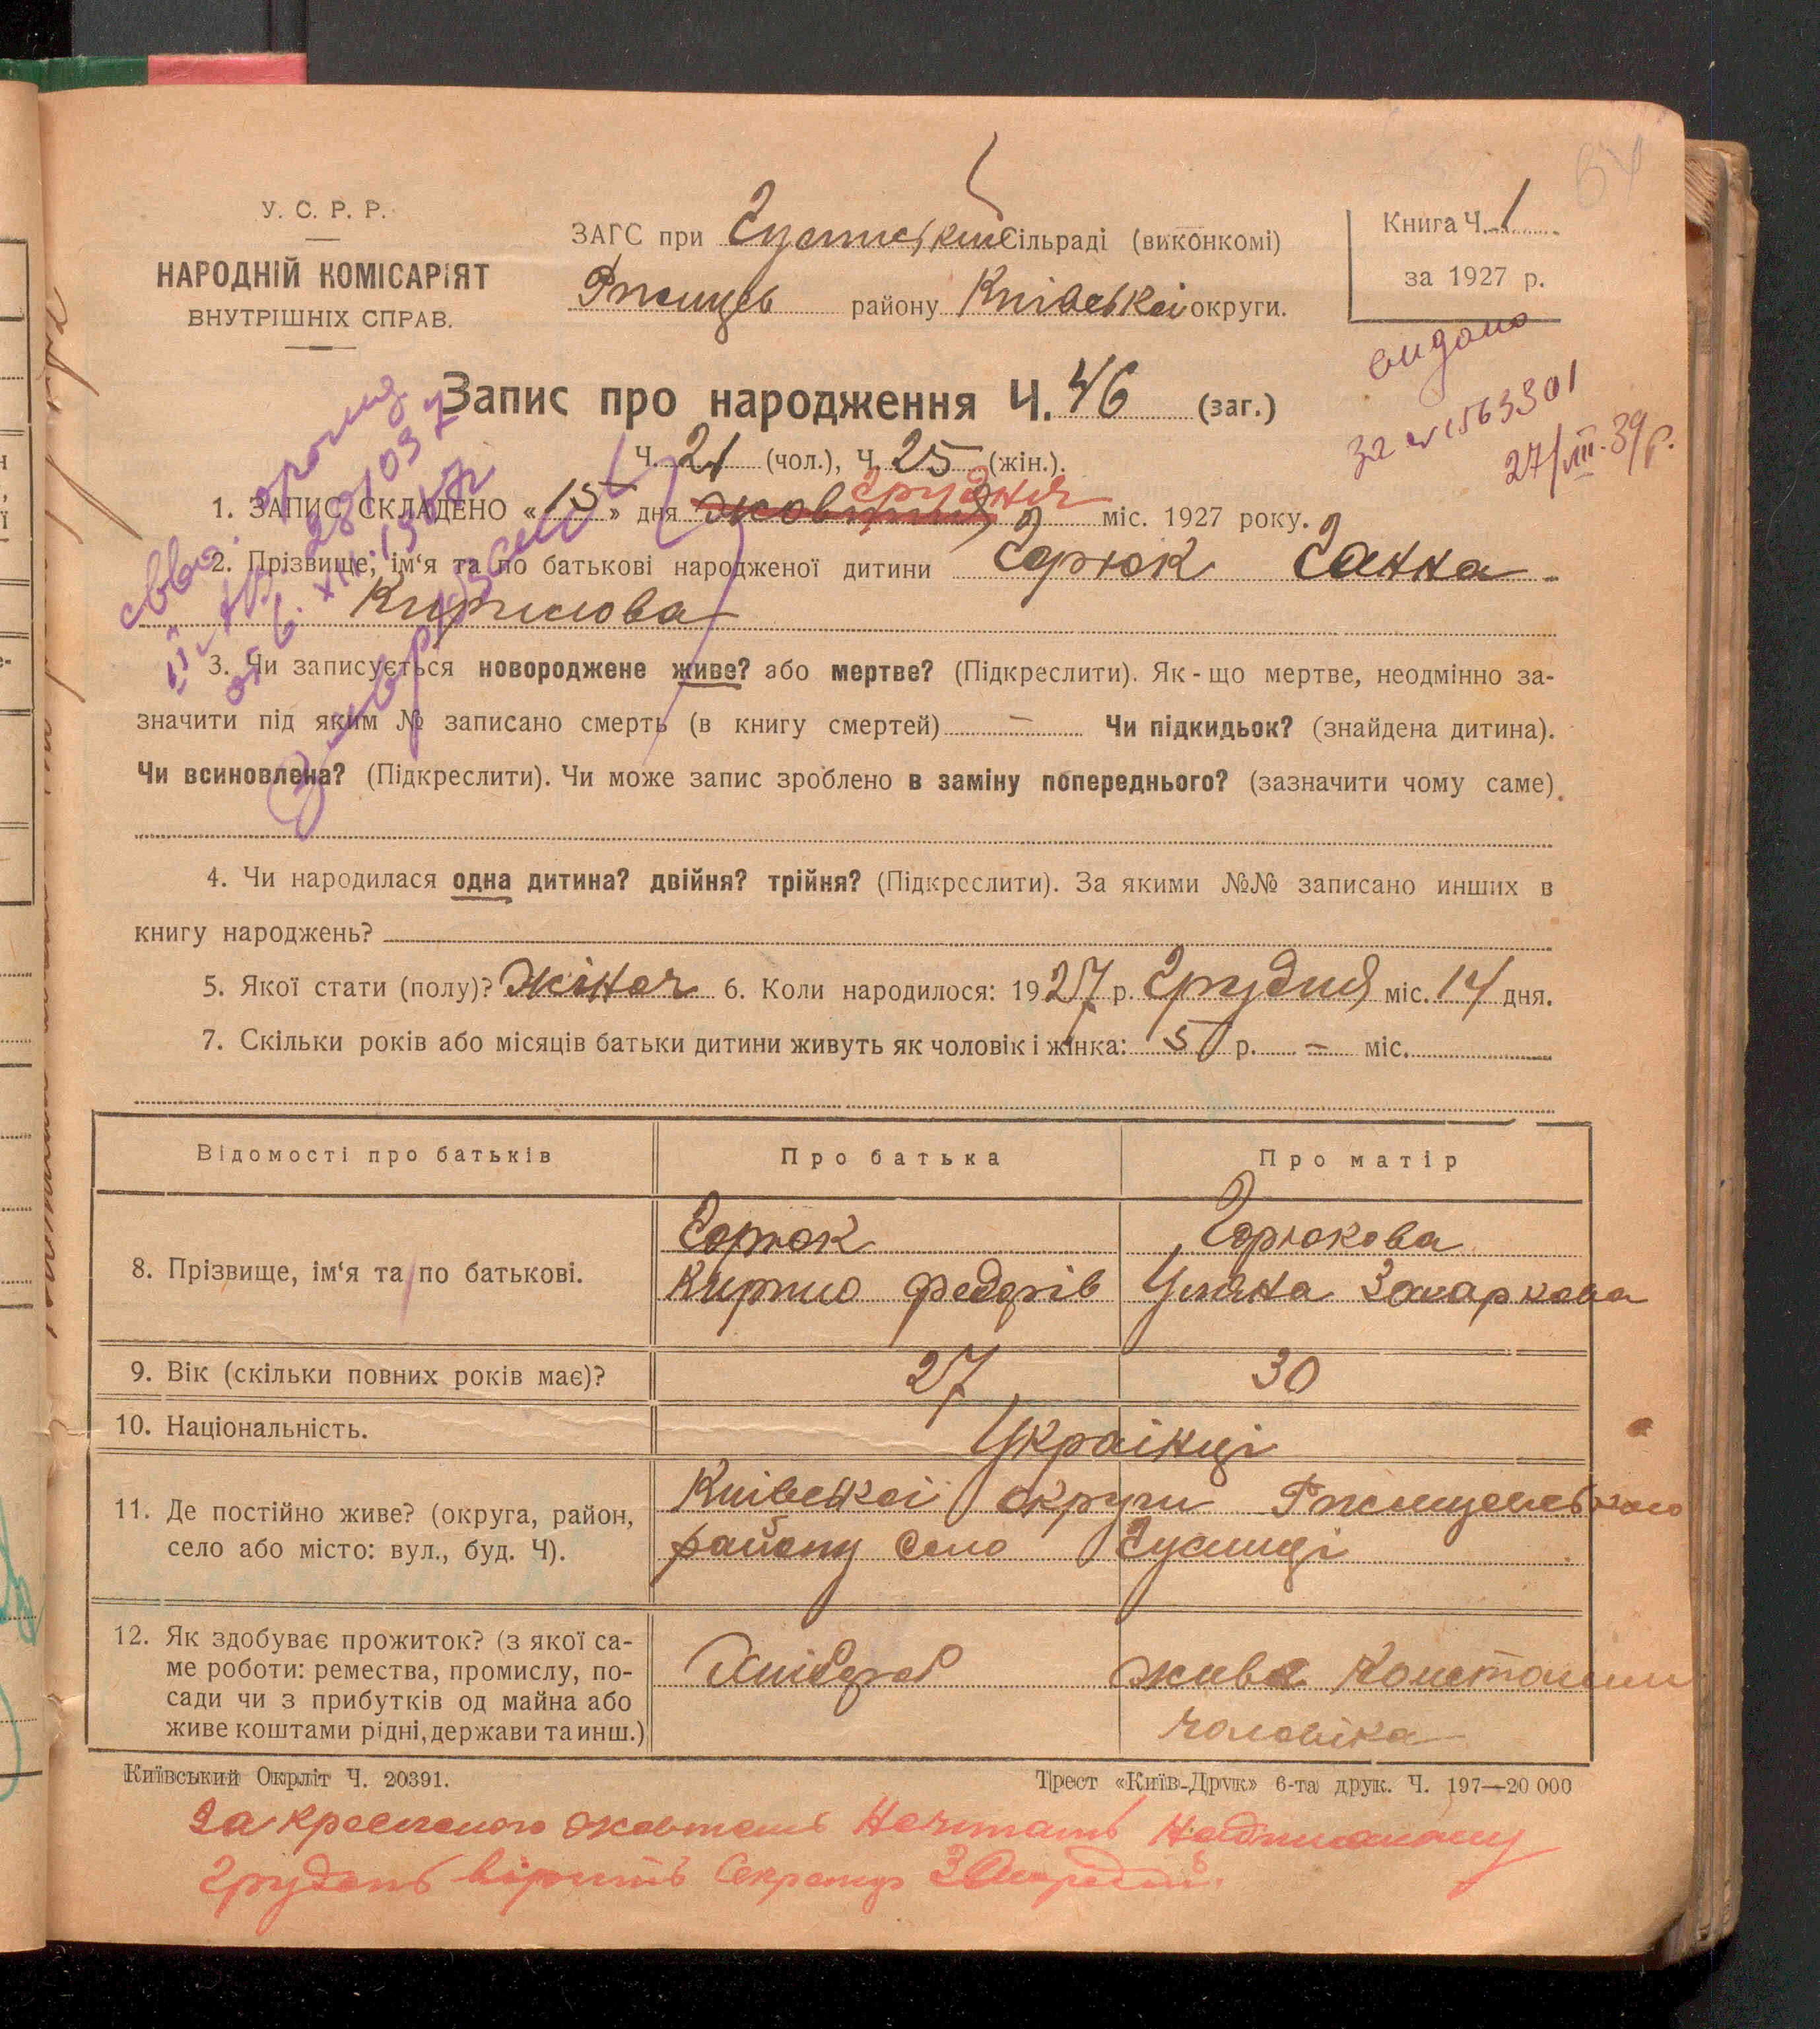 У. С. Р. Р.
НАРОДНІЙ КОМІСАРІЯТ
ВНУТРІШНІХ СПРАВ.
ЗАГС при сільраді (виконкомі)
району Київської округи.
Книга Ч. 1
за 1927 р.
64
видано
за № 1563301
27/VIII.39р.
Запис про народження Ч. 46 (заг.)
Ч. 21 (чол.), Ч. 25 (жін.).
грудня
1. ЗАПИС СКЛАДЕНО «15» дня жовтня міс. 1927 року.
2. Прізвище, ім‘я та по батькові народженої дитини Горюк Ганна
Кирилова
3. Чи записується новороджене живе? або мертве? (Підкреслити). Як-що мертве, неодмінно за-
значити під яким № записано смерть (в книгу смертей) — Чи підкидьок? (знайдена дитина).
Чи всиновлена? (Підкреслити). Чи може запис зроблено в заміну попереднього? (зазначити чому саме).
4. Чи народилася одна дитина? двійня? трійня? (Підкреслити). За якими №№ записано инших в
книгу народжень?
5. Якої стати (полу)? Жіноч 6. Коли народилося: 1927 р. Грудня міс. 14 дня.
7. Скільки років або місяців батьки дитини живуть як чоловік і жінка: 5 р. — міс.
Відомості про батьків Про батька Про матір
8. Прізвище, ім‘я та по батькові.
Горюк Горюкова
Кирило Федорів Уляна Захаркова
9. Вік (скільки повних років має)? 27 30
10. Національність. Українці
11. Де постійно живе? (округа, район,
село або місто: вул., буд. Ч).
Київської округи Ржищевського
району село
12. Як здобуває прожиток? (з якої са-
ме роботи: ремества, промислу, по-
сади чи з прибутків од майна або
живе коштами рідні, держави та инш.)
Хлібороб живе коштами
чоловіка
Київський Окрліт Ч. 20391.
Трест «Київ-Друк» 6-та друк. Ч. 197—20 000
Закресленого жовтень
грудень вірить Секретар